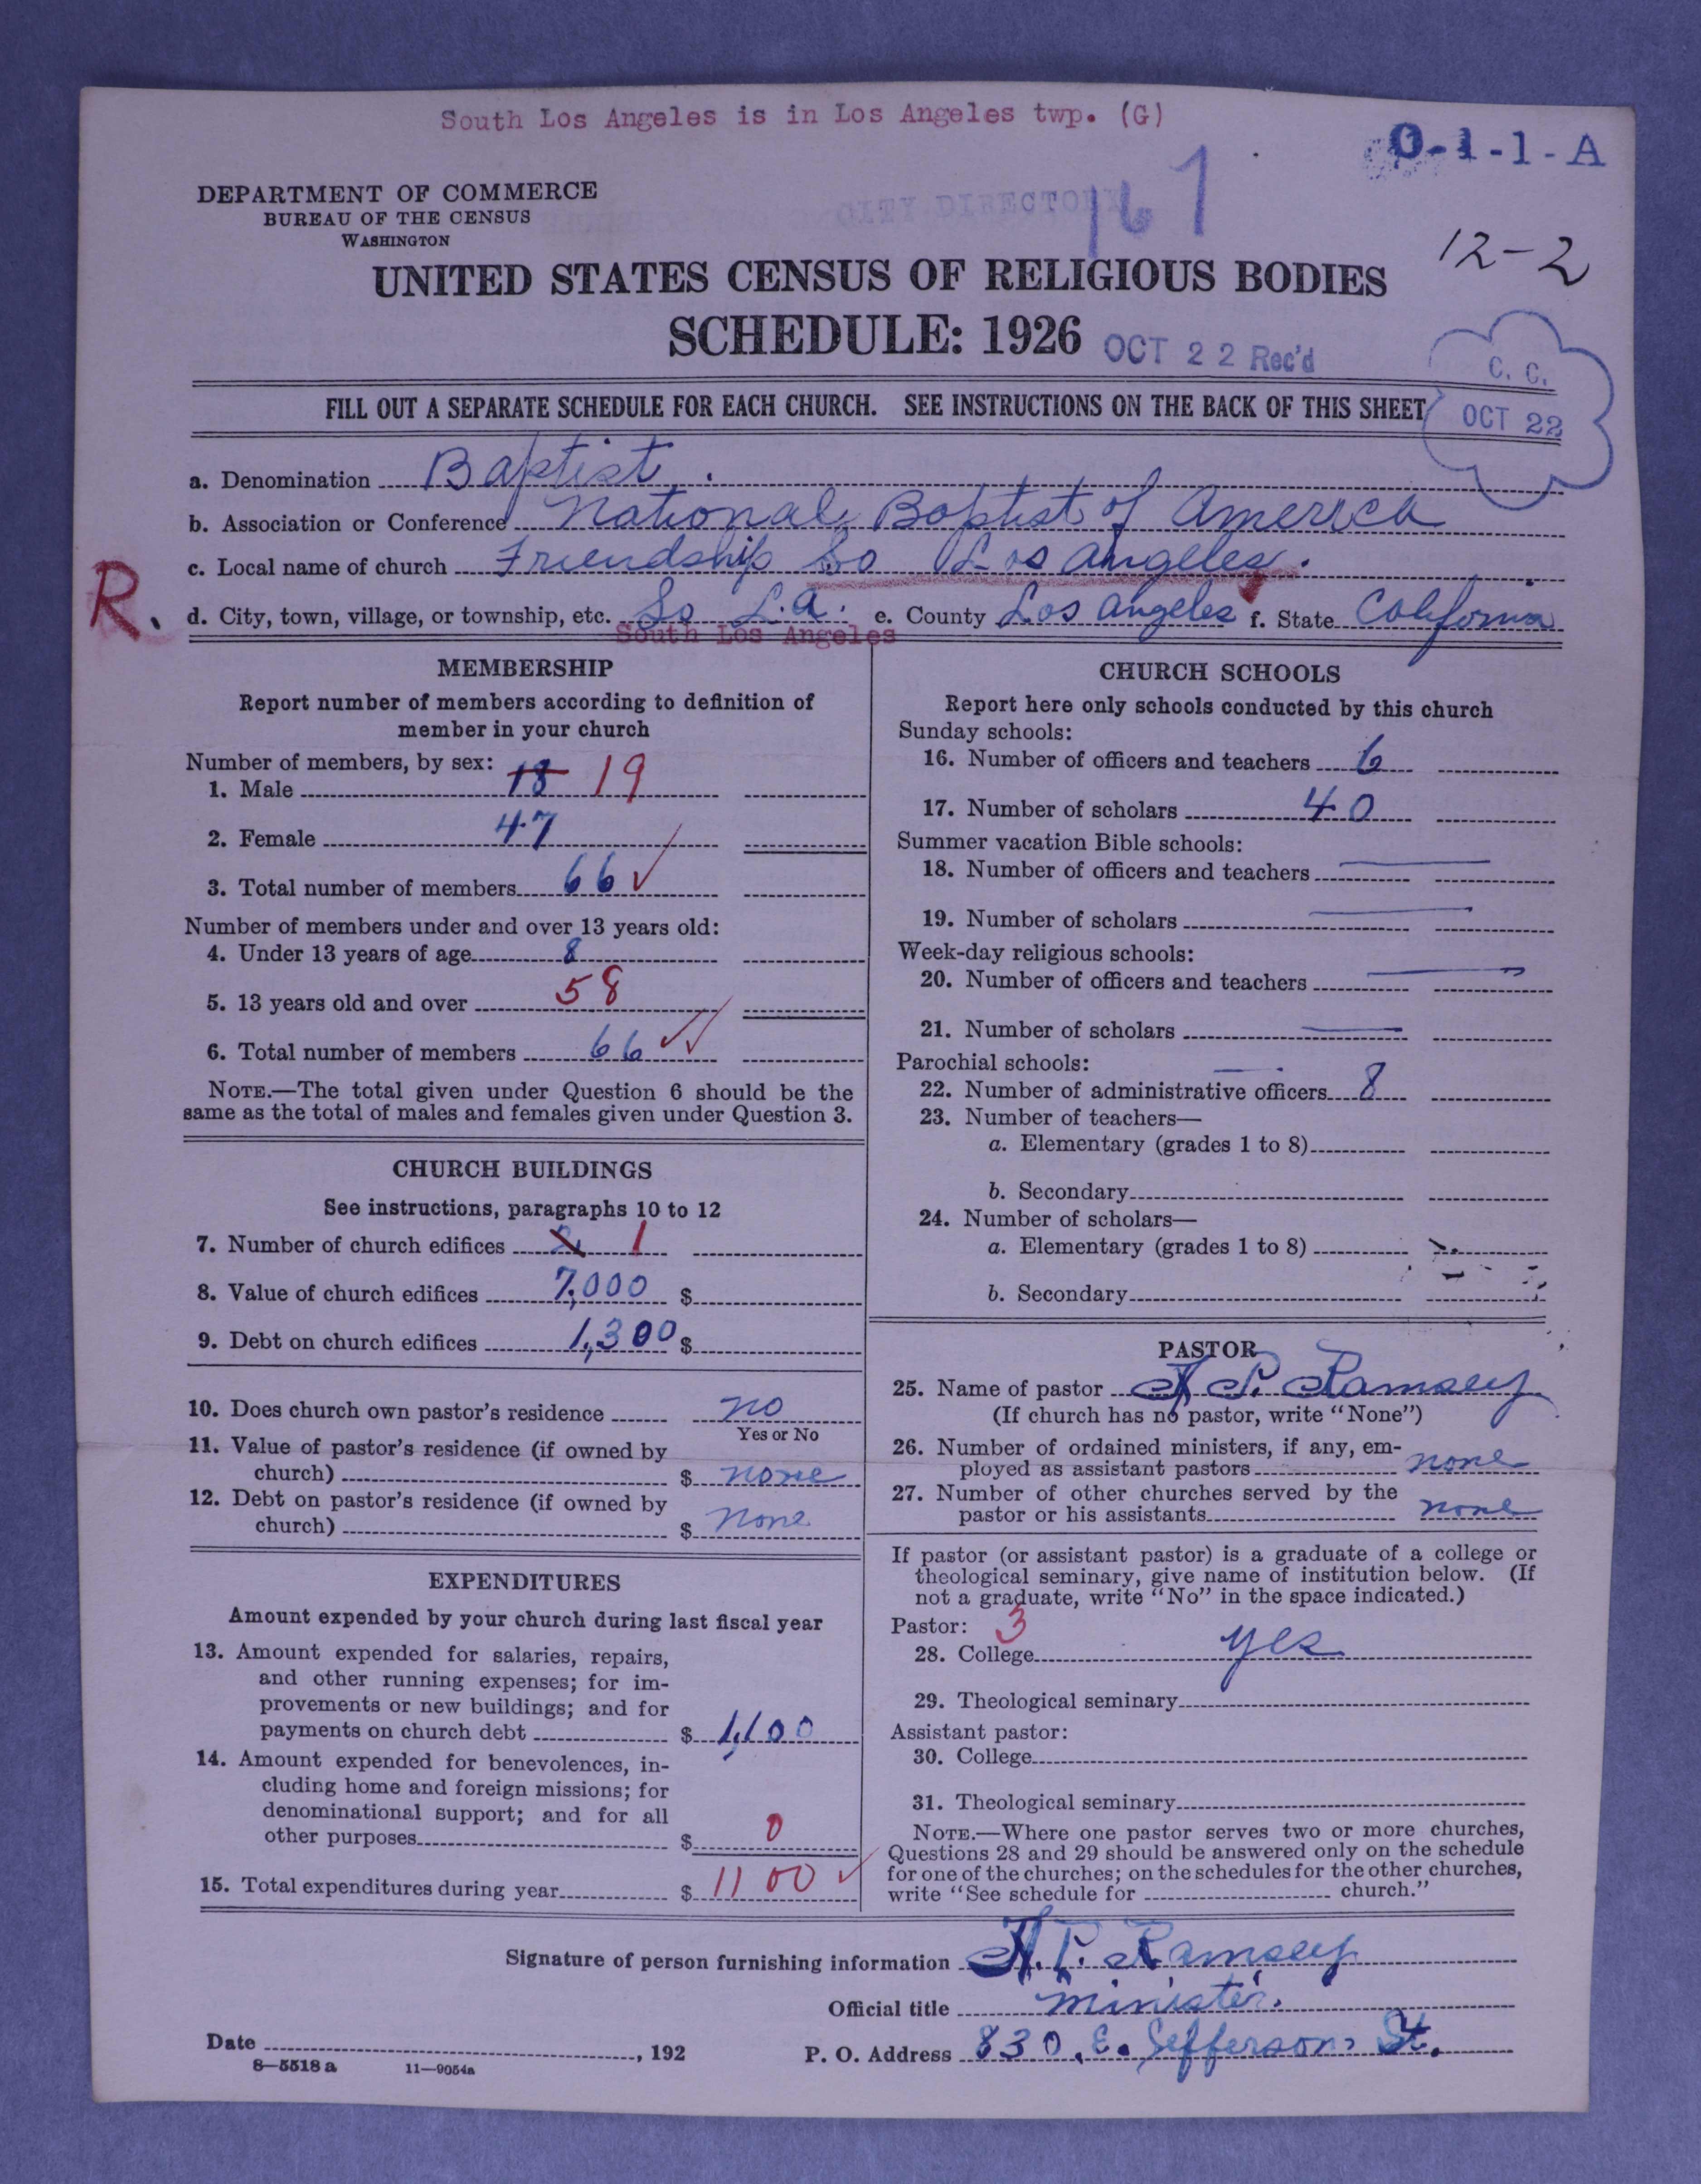 South Los Angeles is in Los Angeles twp. (G)
0-1-1-A
DEPARTMENT OF COMMERCE
BUREAU OF THE CENSUS
WASHINGTON
CITY DIRECTORY
167
12-2
UNITED STATES CENSUS OF RELIGIOUS BODIES
SCHEDULE: 1926
OCT 22 Rec'd
C. C.
OCT 22
FILL OUT A SEPARATE SCHEDULE FOR EACH CHURCH. SEE INSTRUCTIONS ON THE BACK OF THIS SHEET
a. Denomination Baptist.
b. Association or Conference National Baptist of America
c. Local name of church Friendship So Los Angeles.
R.
d. City, town, village, or township, etc. So L.A. e. County Los Angeles f. State California
South Los Angeles
MEMBERSHIP
Report number of members according to definition of
member in your church
Number of members, by sex:
1. Male 18 19
2. Female 47
3. Total number of members 66 ✓
Number of members under and over 13 years old:
4. Under 13 years of age 8
5. 13 years old and over 58
6. Total number of members 66 ✓✓
NOTE.—The total given under Question 6 should be the
same as the total of males and females given under Question 3.
CHURCH BUILDINGS
See instructions, paragraphs 10 to 12
7. Number of church edifices 1
8. Value of church edifices 7,000 $
9. Debt on church edifices 1,300 $
10. Does church own pastor's residence no
Yes or No
11. Value of pastor's residence (if owned by
church) $ none
12. Debt on pastor's residence (if owned by
church) $ none
EXPENDITURES
Amount expended by your church during last fiscal year
13. Amount expended for salaries, repairs,
and other running expenses; for im-
provements or new buildings; and for
payments on church debt $ 1,100
14. Amount expended for benevolences, in-
cluding home and foreign missions; for
denominational support; and for all
other purposes $ 0
15. Total expenditures during year $ 1100 ✓
CHURCH SCHOOLS
Report here only schools conducted by this church
Sunday schools:
16. Number of officers and teachers 6
17. Number of scholars 40
Summer vacation Bible schools:
18. Number of officers and teachers
19. Number of scholars
Week-day religious schools:
20. Number of officers and teachers
21. Number of scholars
Parochial schools:
22. Number of administrative officers 8
23. Number of teachers—
a. Elementary (grades 1 to 8)
b. Secondary
24. Number of scholars—
a. Elementary (grades 1 to 8)
b. Secondary
PASTOR
25. Name of pastor A. P. Ramsey
(If church has no pastor, write "None")
26. Number of ordained ministers, if any, em-
ployed as assistant pastors none
27. Number of other churches served by the
pastor or his assistants none
If pastor (or assistant pastor) is a graduate of a college or
theological seminary, give name of institution below. (If
not a graduate, write "No" in the space indicated.)
Pastor: 3
28. College yes
29. Theological seminary
Assistant pastor:
30. College
31. Theological seminary
NOTE.—Where one pastor serves two or more churches,
Questions 28 and 29 should be answered only on the schedule
for one of the churches; on the schedules for the other churches,
write "See schedule for church."
Signature of person furnishing information A. P. Ramsey
Official title minister.
Date , 192
P. O. Address 830. E. Jefferson St.
8—5518 a 11—9054a